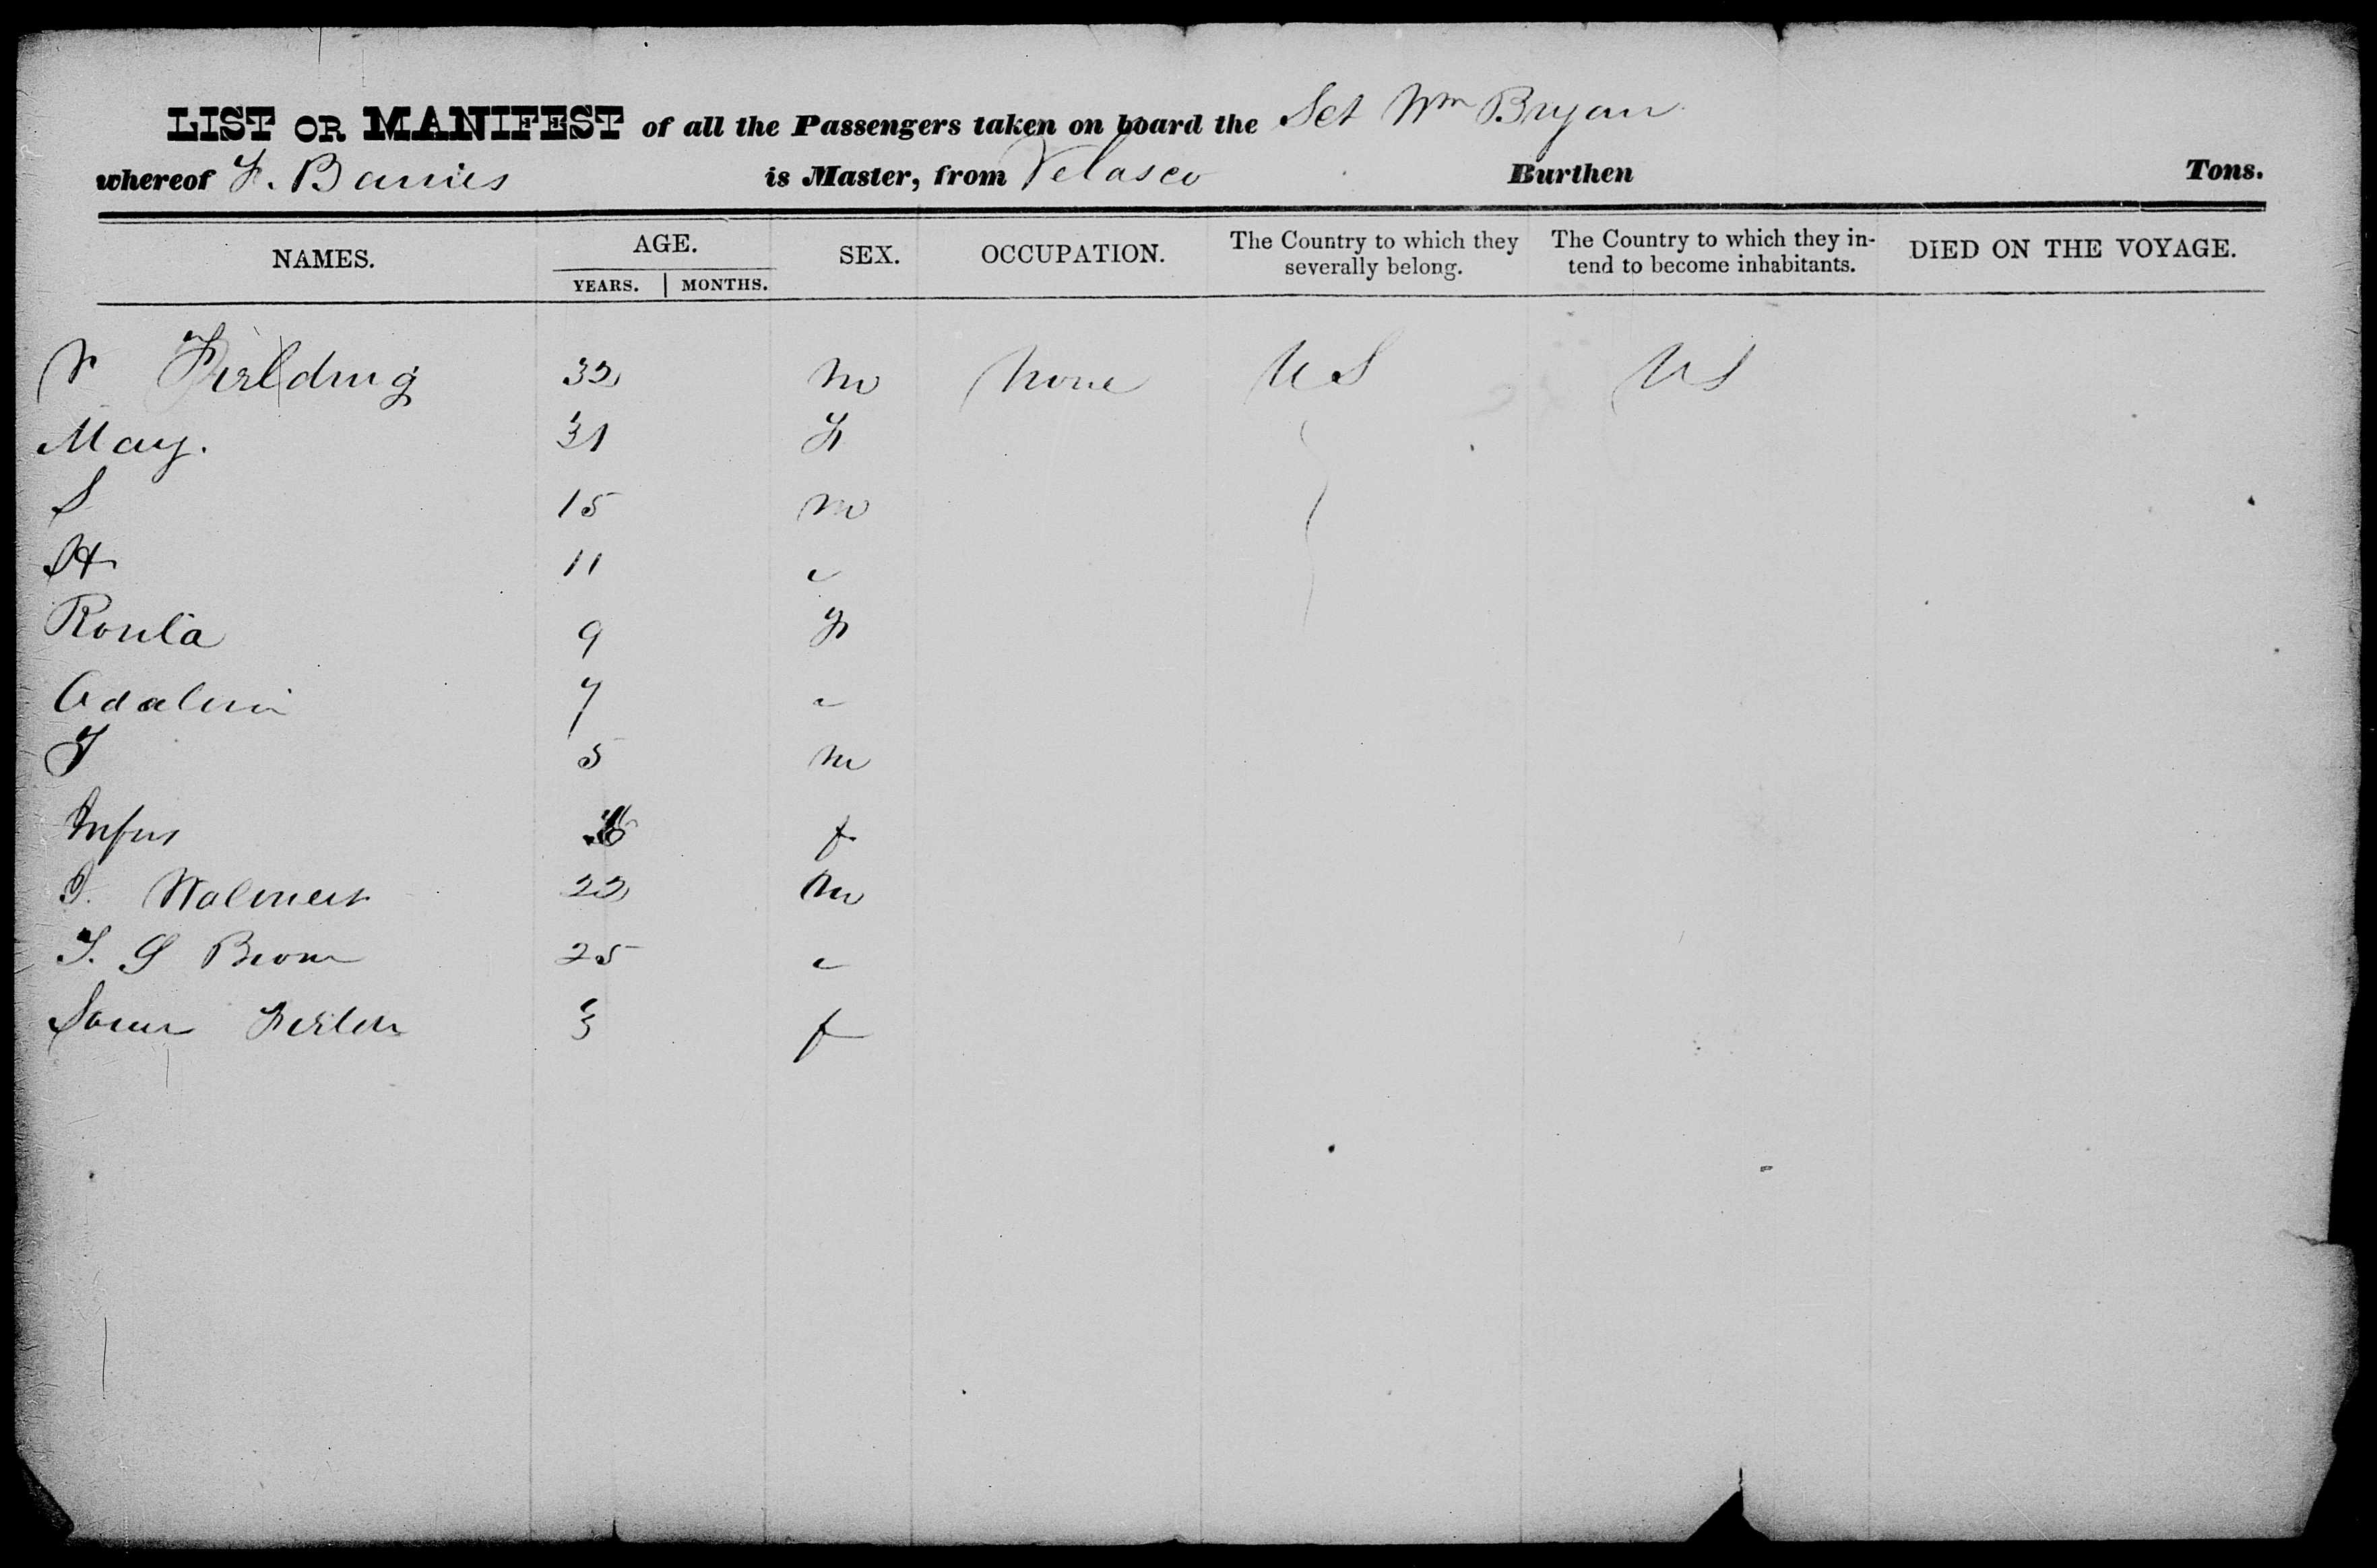 LIST OR MANIFEST of all the Passengers taken on board the Sch Wm Bryan
whereof F. Barnes is Master, from Velasco Burthen Tons.
NAMES. AGE. SEX. OCCUPATION. The Country to which they severally belong. The Country to which they in-tend to become inhabitants. DIED ON THE VOYAGE.
YEARS. MONTHS.
Fielding 32 m None US US
Mary. 31 F
S 15 m
H 11 "
9 F
Adaline 7 "
J 5 m
f
22 m
J. S Brown 25 "
3 f